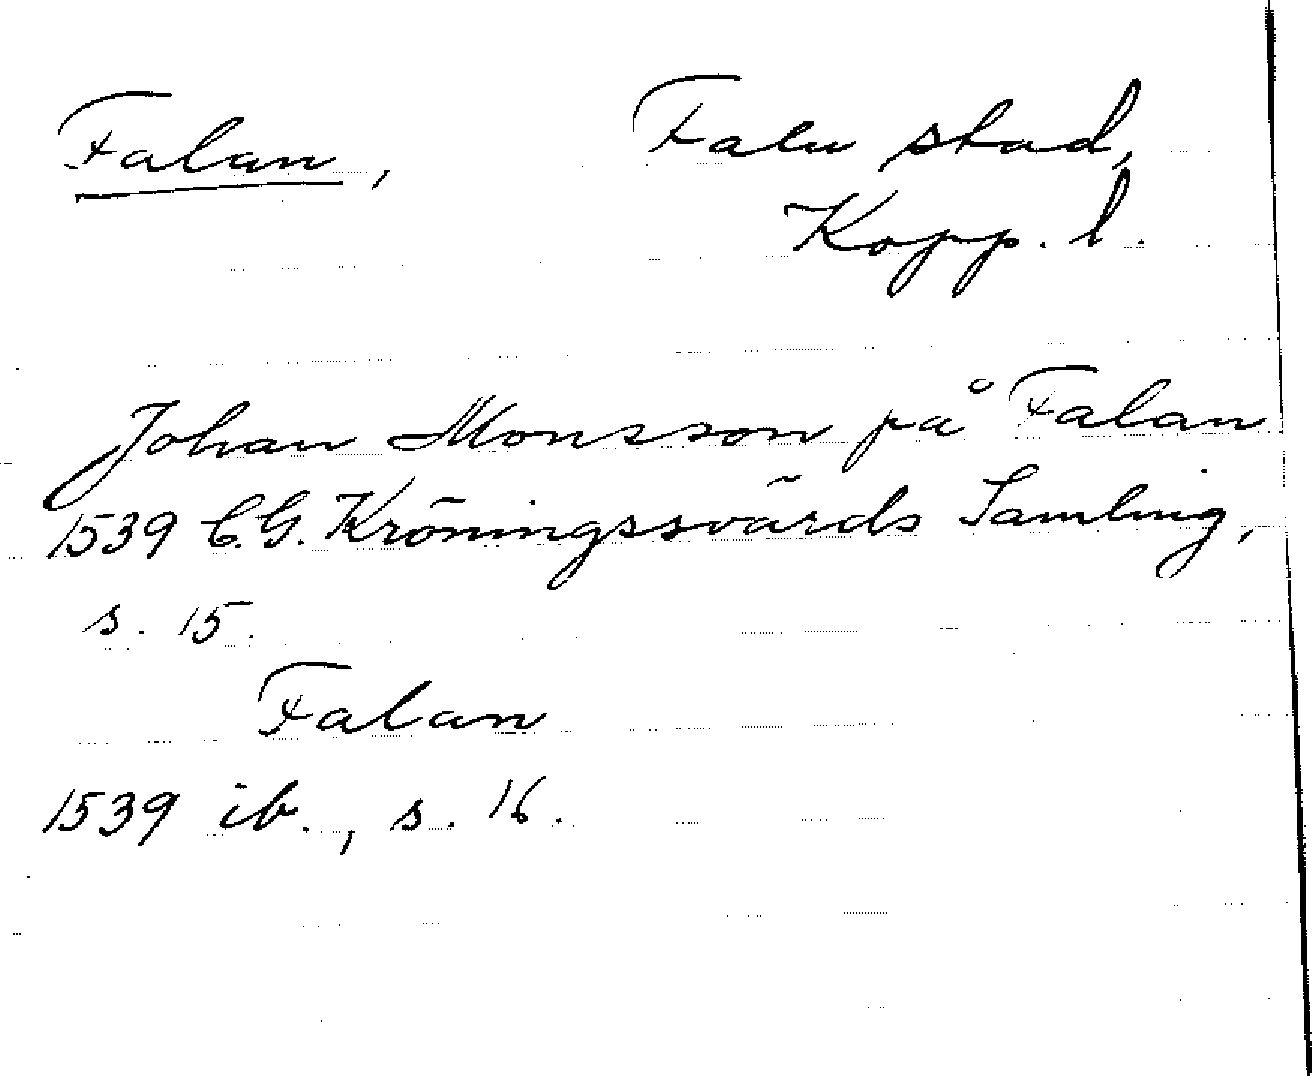 Falan, Falu stad,
Kopp. l.
Johan Monsson på Falan
1539 C.G. Kröningssvärds Samling,
s. 15.
Falan
1539 ib., s. 16.